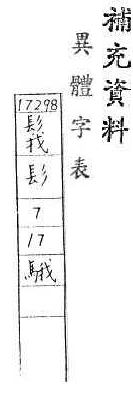 補充資料
異體字表
17298
髟
7
17
騀